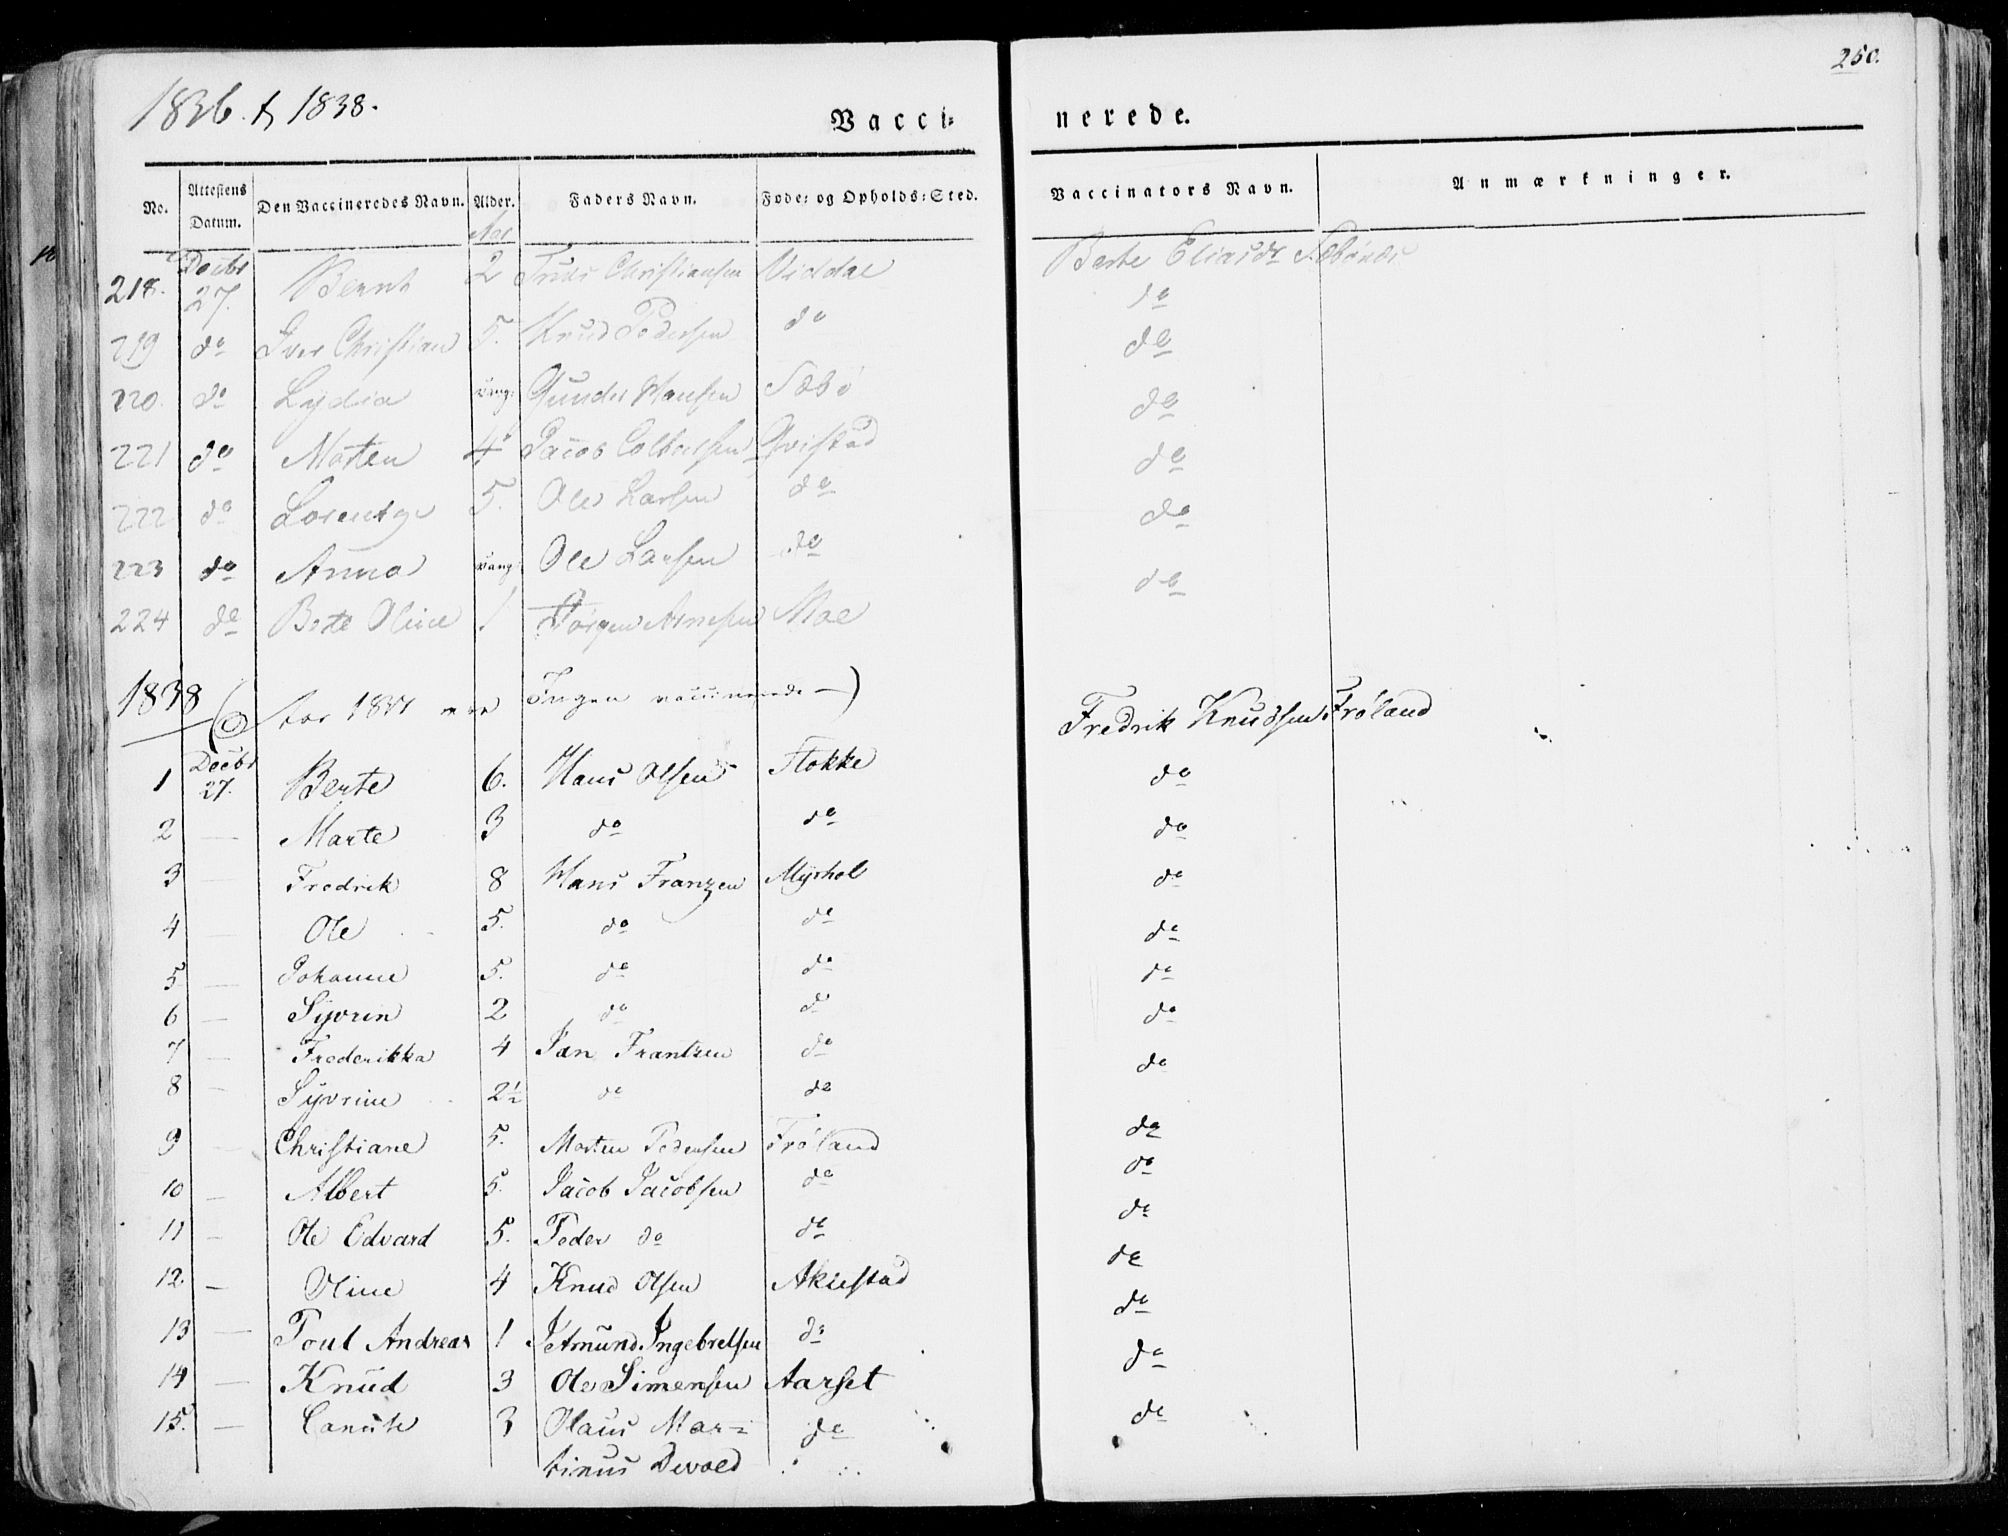 250.
1836. & 1838.
Vacci- nerede.
No. Attestens Datum. Den Vaccineredes Navn. Alder. Faders Navn. Føde- og Opholds-Sted. Vaccinators Navn. Anmærkninger.
Aar
218. Decbr 27. Bernt 2 Christiansen Viddal Berte Eliasdr Sæbønes
219 do Iver Christian 5. Knud Pedersen do do
220. do Lydia Gunder Hansen Sæbø do
221 do Morten 4 Jacob Qvistad do
222 do Lorentze 5. Ole Larsen do do
223 do Anna Ole Larsen do do
224 do Berte Oline 1 Jørgen Arnesen Moe do
1838 (for 1837 Ingen vaccinerede —)
1 Decbr 27. Berte 6. Hans Olsen Flokke Fredrik Knudsen Frøland
2 — Marte 3 do do do
3 — Fredrik 8 Hans Franzen Myrhol do
4 — Ole 5. do do do
5 — Johanne 5. do do do
6 — Syvrin 2 do do do
7 — Frederikka 4 Jan Frantzen do do
8 — Syvrine 2½ do do do
9 — Christiane 5. Morten Pedersen Frøland do
10 — Albert 5. Jacob Jacobsen do do
11 — Ole Edvard 5. Peder do do do
12. — Oline 4 Knud Olsen Akslestad do
13 — Poul Andreas 1 Jetmund Ingebretsen do do
14 — Knud 3 Ole Simensen Aarset do
15. — Canute 3 Olaus Mar- do do
tinus Devold